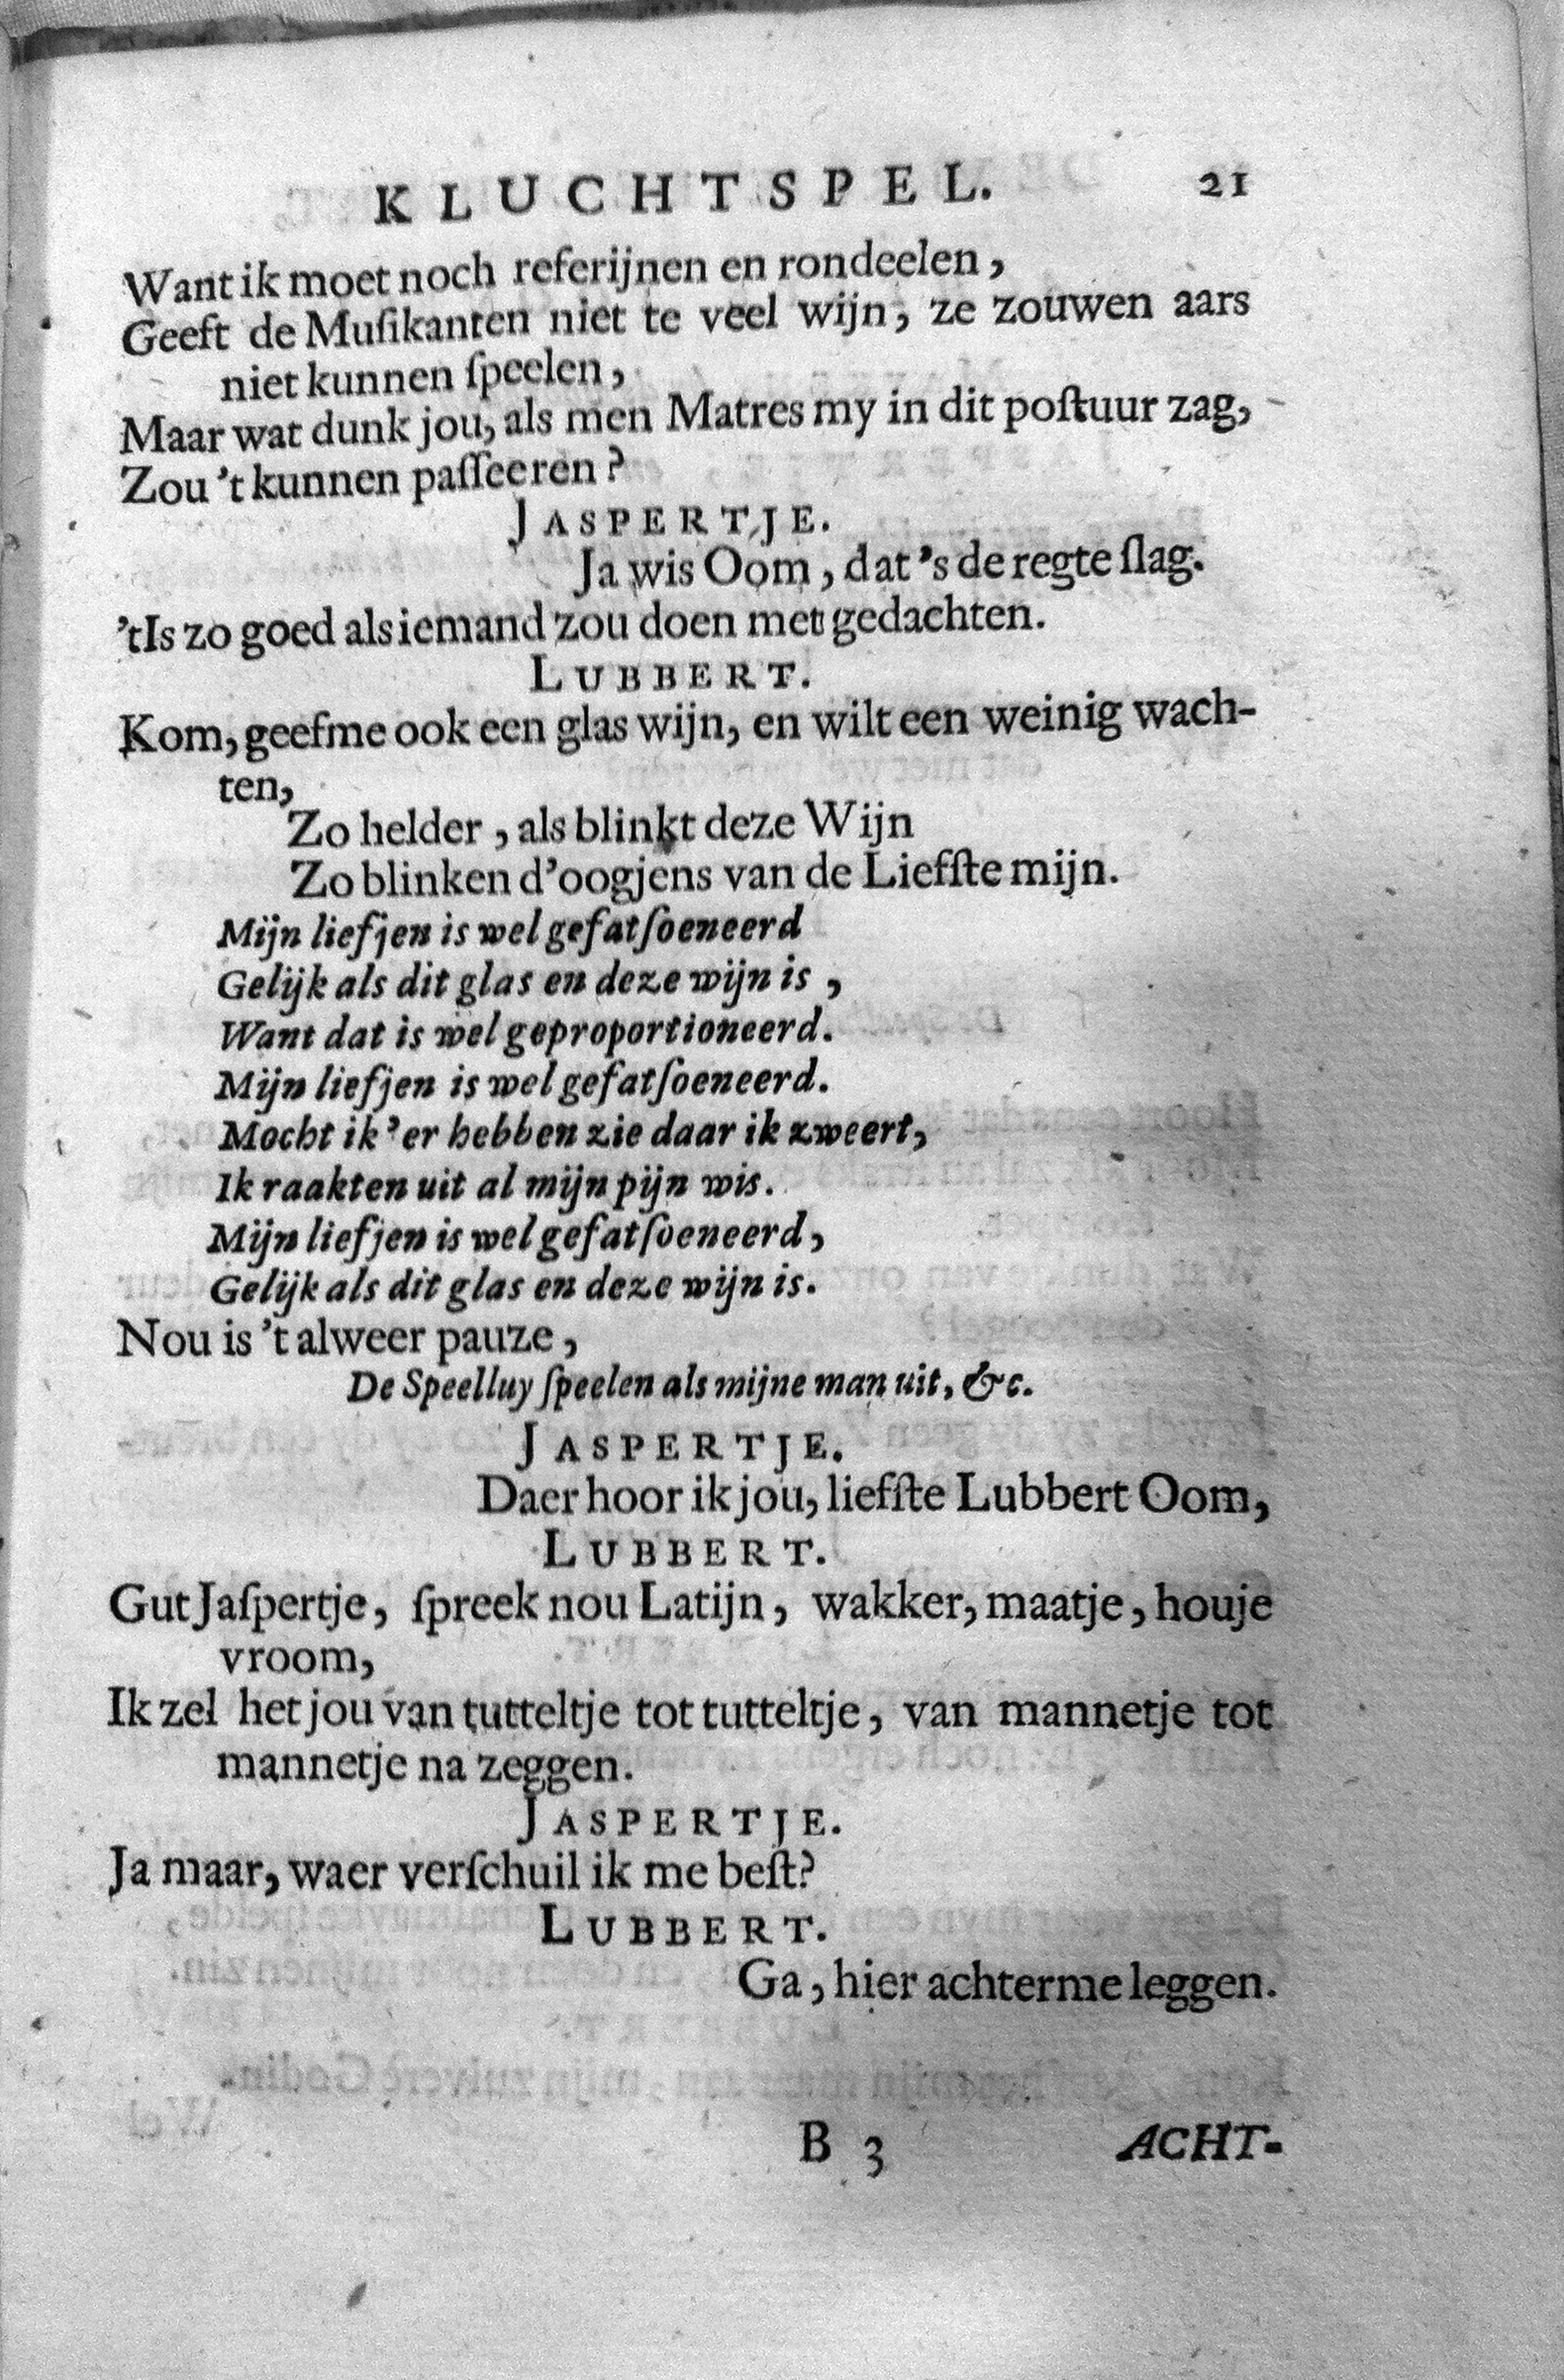 KLUCHTSPEL. 21
Want ik moet noch referijnen en rondeelen,
Geeft de Muſikanten niet te veel wijn, ze zouwen aars
niet kunnen ſpeelen,
Maar wat dunk jou, als men Matres my in dit poſtuur zag,
Zou 't kunnen paſſeeren?
JASPERTJE.
Ja wis Oom, dat 's de regte ſlag.
'tIs zo goed als iemand zou doen met gedachten.
LUBBERT.
Kom, geefme ook een glas wijn, en wilt een weinig wach-
ten,
Zo helder, als blinkt deze Wijn
Zo blinken d'oogjens van de Liefſte mijn.
Mijn liefjen is wel gefatſoeneerd
Gelijk als dit glas en deze wijn is,
Want dat is wel geproportioneerd.
Mijn liefjen is wel gefatſoeneerd.
Mocht ik 'er hebben zie daar ik zweert,
Ik raakten uit al mijn pijn wis.
Mijn liefjen is wel gefatſoeneerd,
Gelijk als dit glas en deze wijn is.
Nou is 't alweer pauze,
De Speelluy ſpeelen als mijne man uit, &c.
JASPERTJE.
Daer hoor ik jou, liefſte Lubbert Oom,
LUBBERT.
Gut Jaſpertje, ſpreek nou Latijn, wakker, maatje, houje
vroom,
Ik zel het jou van tutteltje tot tutteltje, van mannetje tot
mannetje na zeggen.
JASPERTJE.
Ja maar, waer verſchuil ik me beſt?
LUBBERT.
Ga, hier achterme leggen.
B 3 ACHT-